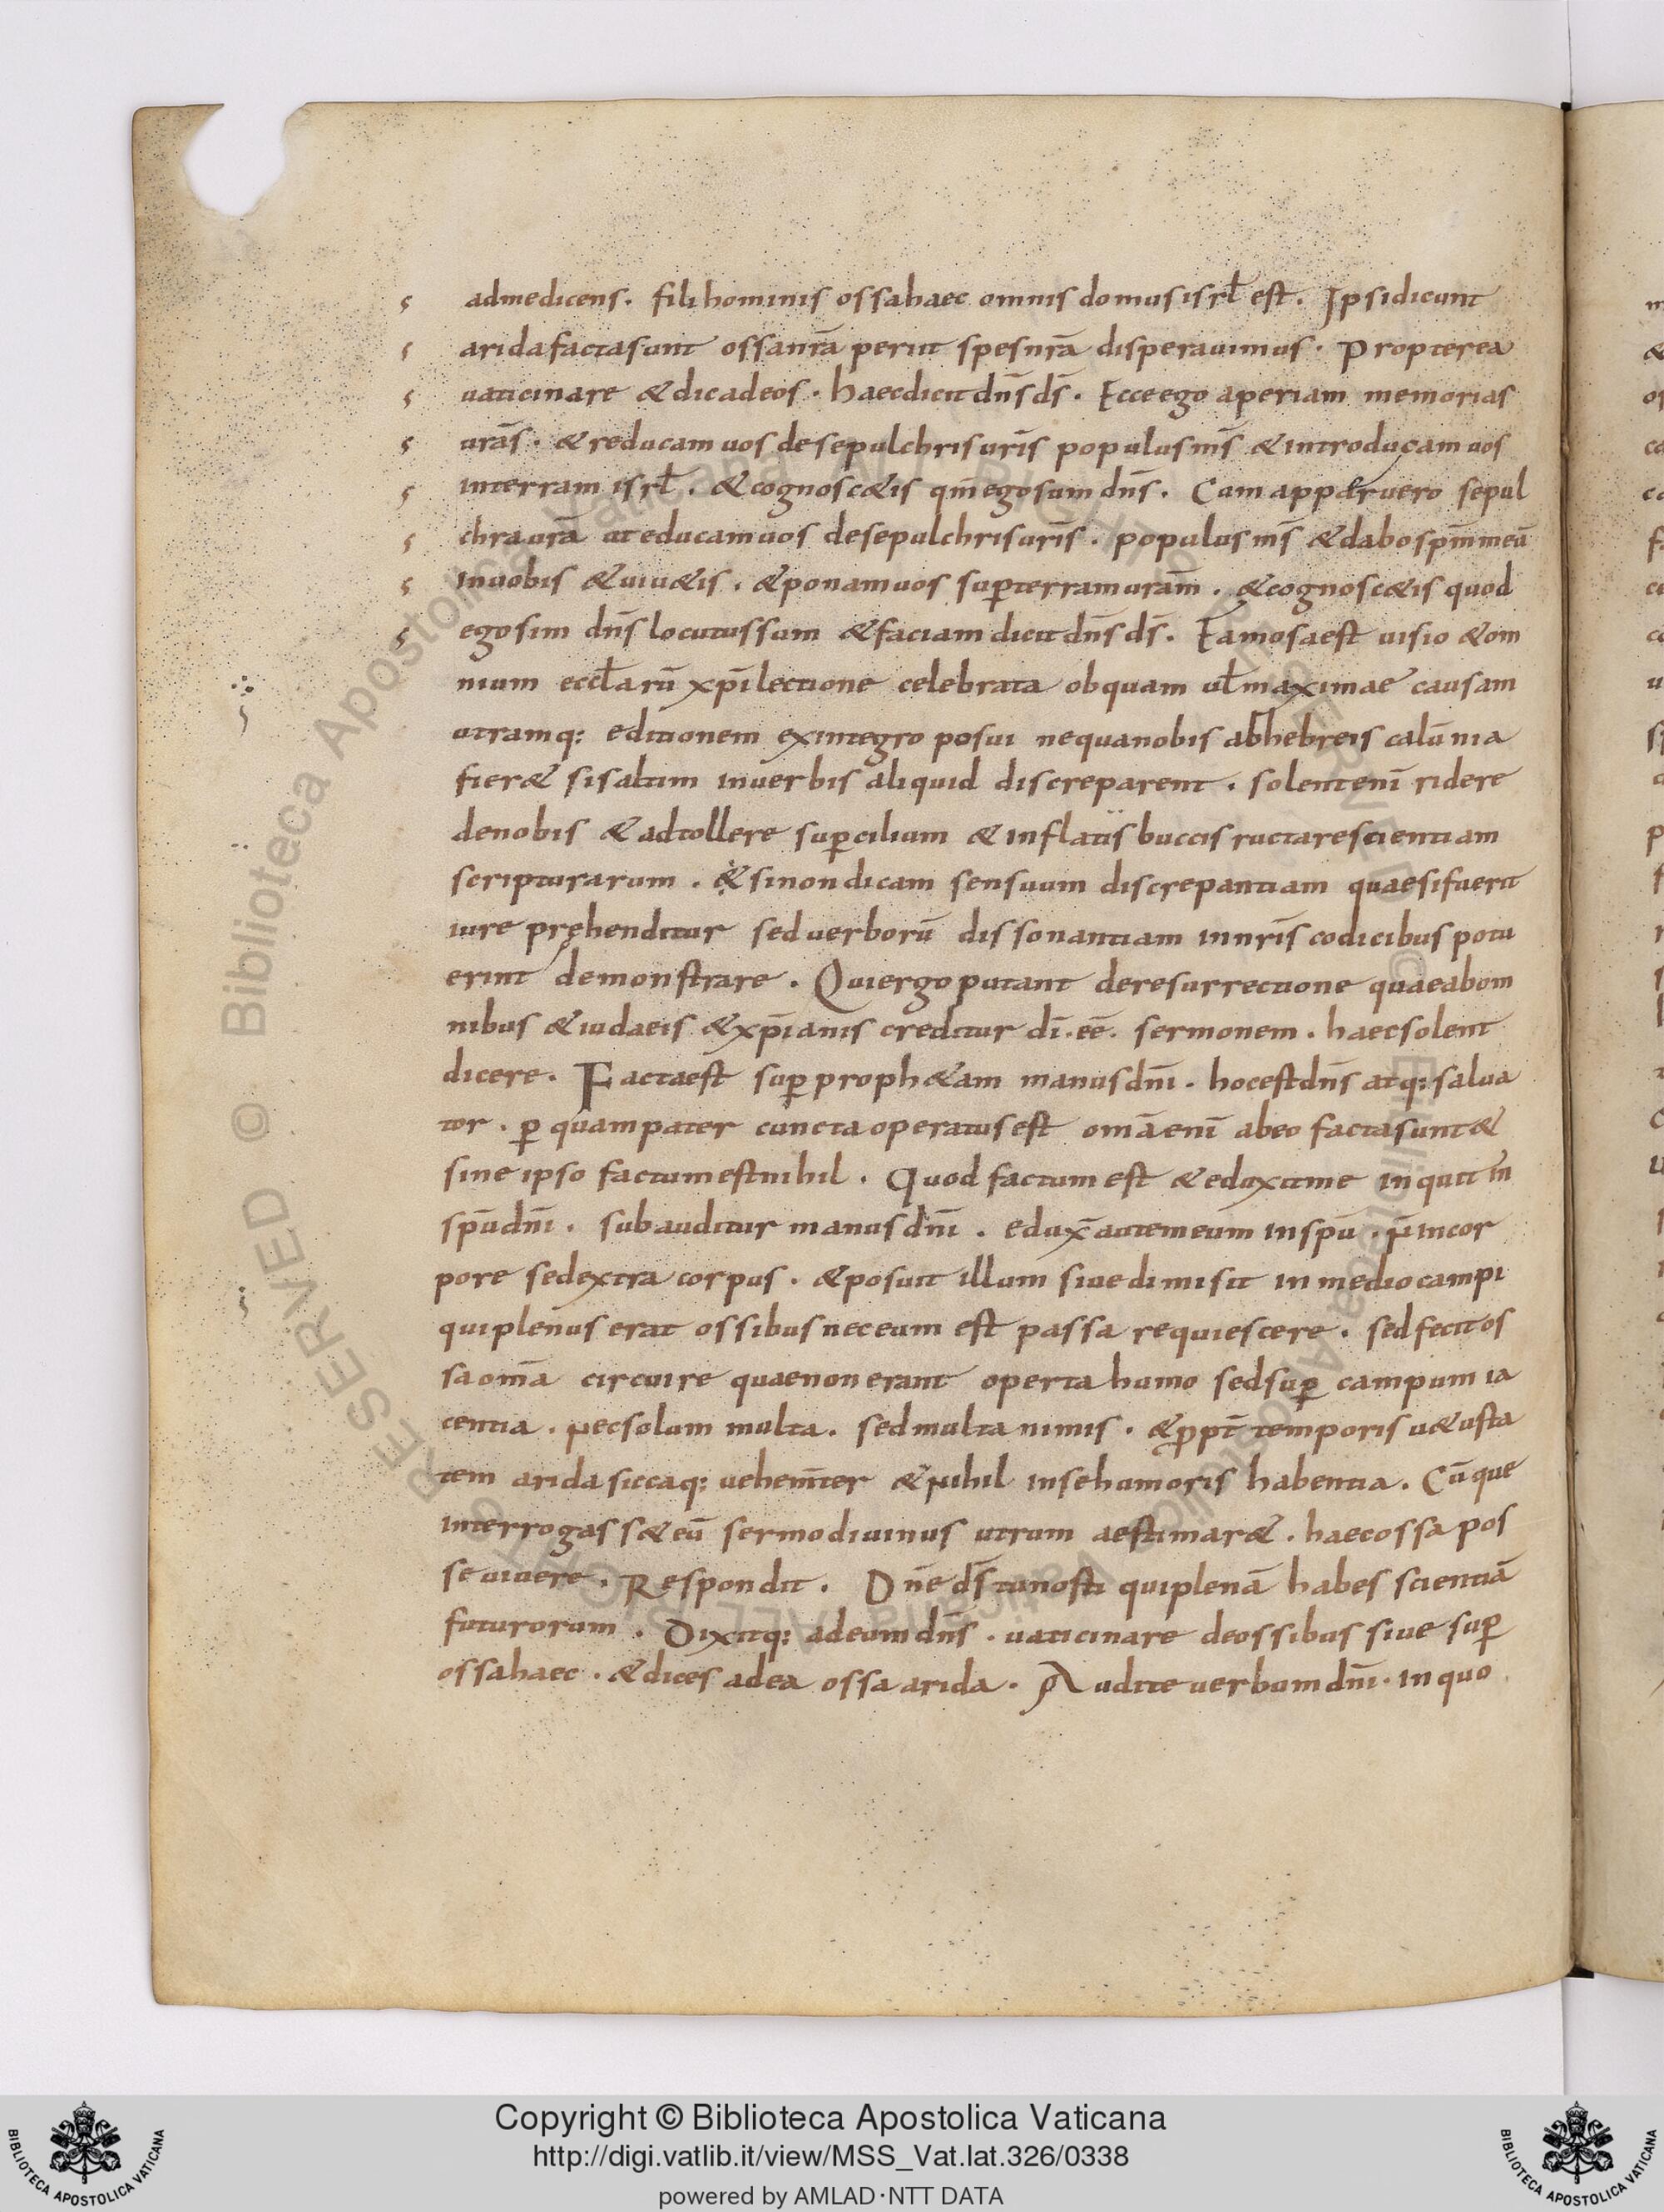 admedicens. fili hominis ossahaec omnis domus isrł est. Ipsidicunt
aridafactasunt ossanr̄a periit spesnr̄a disperauimus. Propterea
uaticinare & dicadeos. haecdicit dn̄s ds̄. Ecceego aperiam memorias
urās. & reducam uos desepulchris uris̄ populus ms̄ & introducam uos
interram isrł. & cognosc&is qm̄ egosum dn̄s. Cum apparuero sepul
chraurā ut educamuos desepulchrisuris̄. populus ms̄ & dabo spm̄ meū
inuobis & uiu&is. & ponamuos sup̄terram urām. & cognosc&is quod
egosim dn̄s locutussum & faciam dicit dn̄s ds̄. Famosaest uisio & om
nium eccłarū xp̄i lectione celebrata obquam uł maximae causam
utramq: editionem exintegro posui nequanobis abhebreis calūnia
fier& sisaltim inuerbis aliquid discreparent. solentenī ridere
denobis & adtollere sup̄cilium & inflatis buccis ructarescientiam
scripturarum. & sinondicam sensuum discrepantiam quaesifuerit
iure pręhenditur seduerborū dissonantiam innrīs codicibus potu
erint demonstrare. Quiergo putant deresurrectione quaeabom
nibus & iudaeis & xp̄ianis creditur dī. eē. sermonem. haecsolent
dicere. Factaest sup̄ proph&am manus dnī. hocest dn̄s atq: salua
tor. p̄ quampater cuncta operatusest omā enī abeo factasunt &
sine ipso factumestnihil. Quod factum est & eduxitme inquit in
spū dnī. subauditur manus dnī. edux̄ autemeum inspū. n̄ incor
pore sedextra corpus. & posuit illum siuedimisit in mediocampi
quiplenus erat ossibus neceum est passa requiescere. sedfecitos
saomā circuire quaenonerant operta humo sedsup̄ campum ia
centia. necsolum multa. sedmulta nimis. & ppt̄ temporis u&usta
tem arida siccaq: uehem̄ter & nihil insehumoris habentia. Cūque
interrogass& eū sermodiuinus utrum aestimar&. haecossa pos
se uiuere. Respondit. Dn̄e ds̄ tunosti quiplenā habes scientiā
futurorum. Dixitq: adeum dn̄s. uaticinare deossibus siue sup̄
ossahaec. & dices adea ossa arida. Audite uerbum dnī. in quo
Copyright © Biblioteca Apostolica Vaticana
http://digi.vatlib.it/view/MSS_Vat.lat.326/0338
powered by AMLAD·NTT DATA
BIBLIOTECA APOSTOLICA VATICANA
BIBLIOTECA APOSTOLICA VATICANA